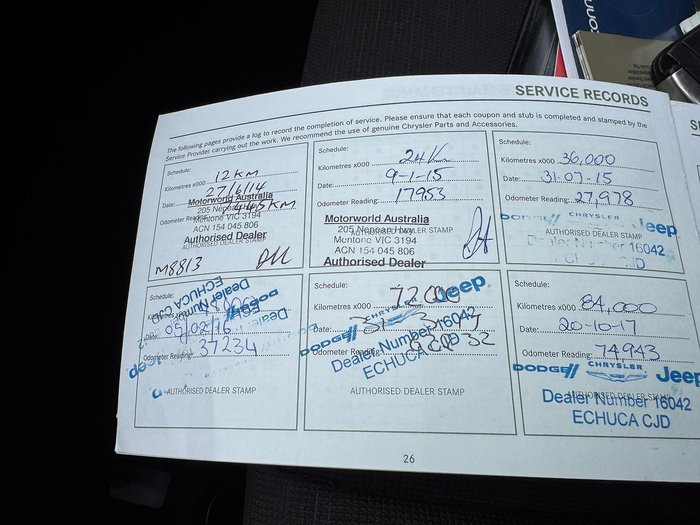 SERVICE RECORDS
The following pages provide a log to record the completion of service. Please ensure that each coupon and stub is completed and stamped by the
Service Provider carrying out the work. We recommend the use of genuine Chrysler Parts and Accessories.
Schedule:
12 KM
Kilometres x000
Date: 27/6/14
Odometer Reading: KM
Motorworld Australia
205 Nepean
Mentone VIC 3194
ACN 154 045 806
Authorised Dealer
M8813
Schedule:
Kilometres x000 24K
Date: 9-1-15
Odometer Reading: 17953
Motorworld Australia
205 Nepean Hwy
AUTHORISED DEALER STAMP
Mentone VIC 3194
ACN 154 045 806
Authorised Dealer
Schedule:
Kilometres x000 36,000
Date: 31-07-15
Odometer Reading: 27,978
DODGE CHRYSLER Jeep
AUTHORISED DEALER STAMP
Dealer Number 16042
ECHUCA CJD
Schedule:
Kilometres x000
Date: 05/02/16
Odometer Reading: 37234
DODGE
Dealer Num
ECHUCA CJD
AUTHORISED DEALER STAMP
Schedule:
Kilometres x000 72000
Date:
Odometer Reading:
DODGE CHRYSLER Jeep
Dealer Number 16042
ECHUCA CJD
AUTHORISED DEALER STAMP
Schedule:
Kilometres x000 84,000
Date: 20-10-17
Odometer Reading: 74,943
DODGE CHRYSLER Jeep
AUTHORISED DEALER STAMP
Dealer Number 16042
ECHUCA CJD
26